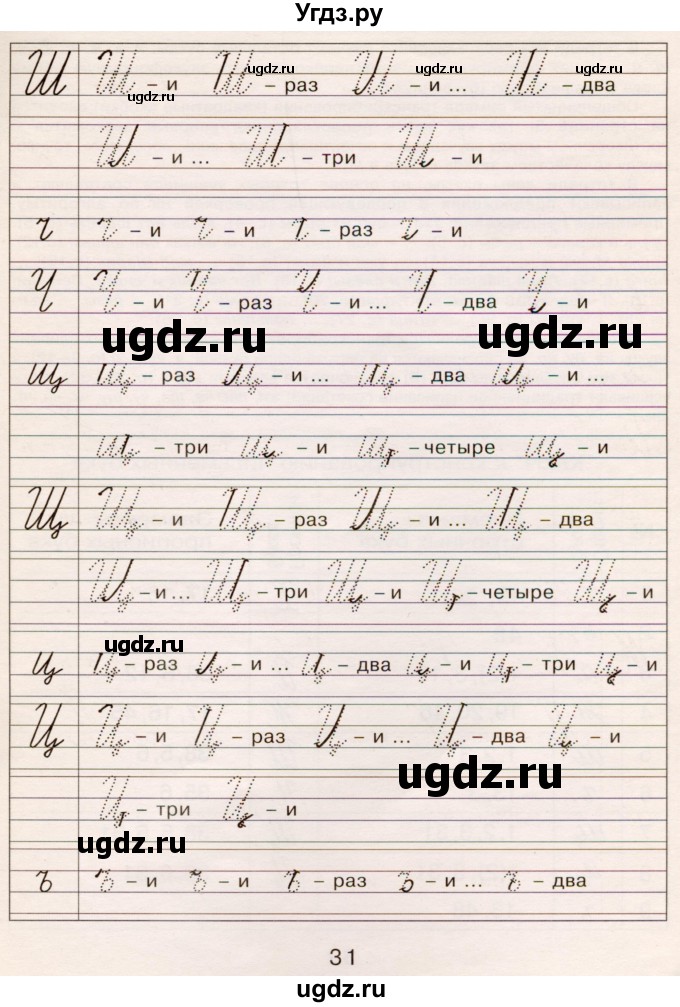 Угдз.ру
Ш Ш – и Ш – раз Ш – и ... Ш – два
ugdz.ru ugdz.ru ugdz.ru ugdz.ru
Ш – и ... Ш – три Ш – и
ч ч – и ч – и ч – раз ч – и
Ч Ч – и Ч – раз Ч – и ... Ч – два Ч – и
ugdz.ru ugdz.ru
щ щ – раз щ – и ... щ – два щ – и ...
щ – три щ – и щ – четыре щ – и
Щ Щ – и Щ – раз Щ – и ... Щ – два
Щ – и ... Щ – три Щ – и Щ – четыре Щ – и
ugdz.ru
ц ц – раз ц – и ... ц – два ц – и ц – три ц – и
Ц Ц – и Ц – раз Ц – и ... Ц – два Ц – и
ugdz.ru
Ц – три Ц – и
ugdz.ru
ъ ъ – и ъ – и ъ – раз ъ – и ... ъ – два
31
ugdz.ru